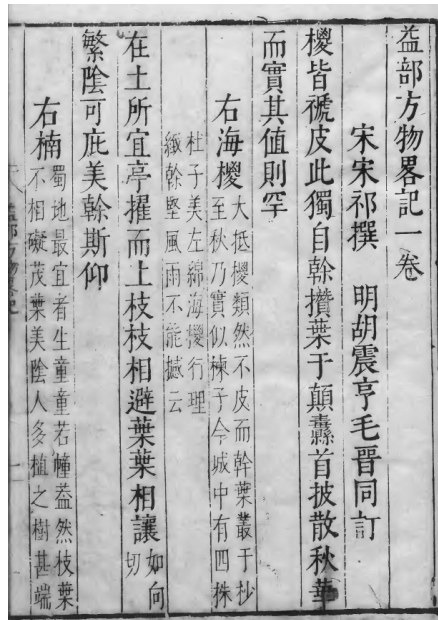 益部方物畧記一卷
宋宋祁撰　明胡震亨毛晉同訂
椶皆褫皮此獨自幹攢葉于顚纛首披散秋華
而實其值則罕
右海椶
大抵椶類然不皮而幹葉叢于杪
至秋乃實似楝子今城中有四株
杜子美左綿海椶行理
緻幹堅風雨不能撼云
在土所宜亭擢而上枝枝相避葉葉相讓
如向
切
繁陰可庇美榦斯仰
右楠
蜀地最宜者生童童若幢葢然枝葉
不相礙茂葉美陰人多植之樹甚端